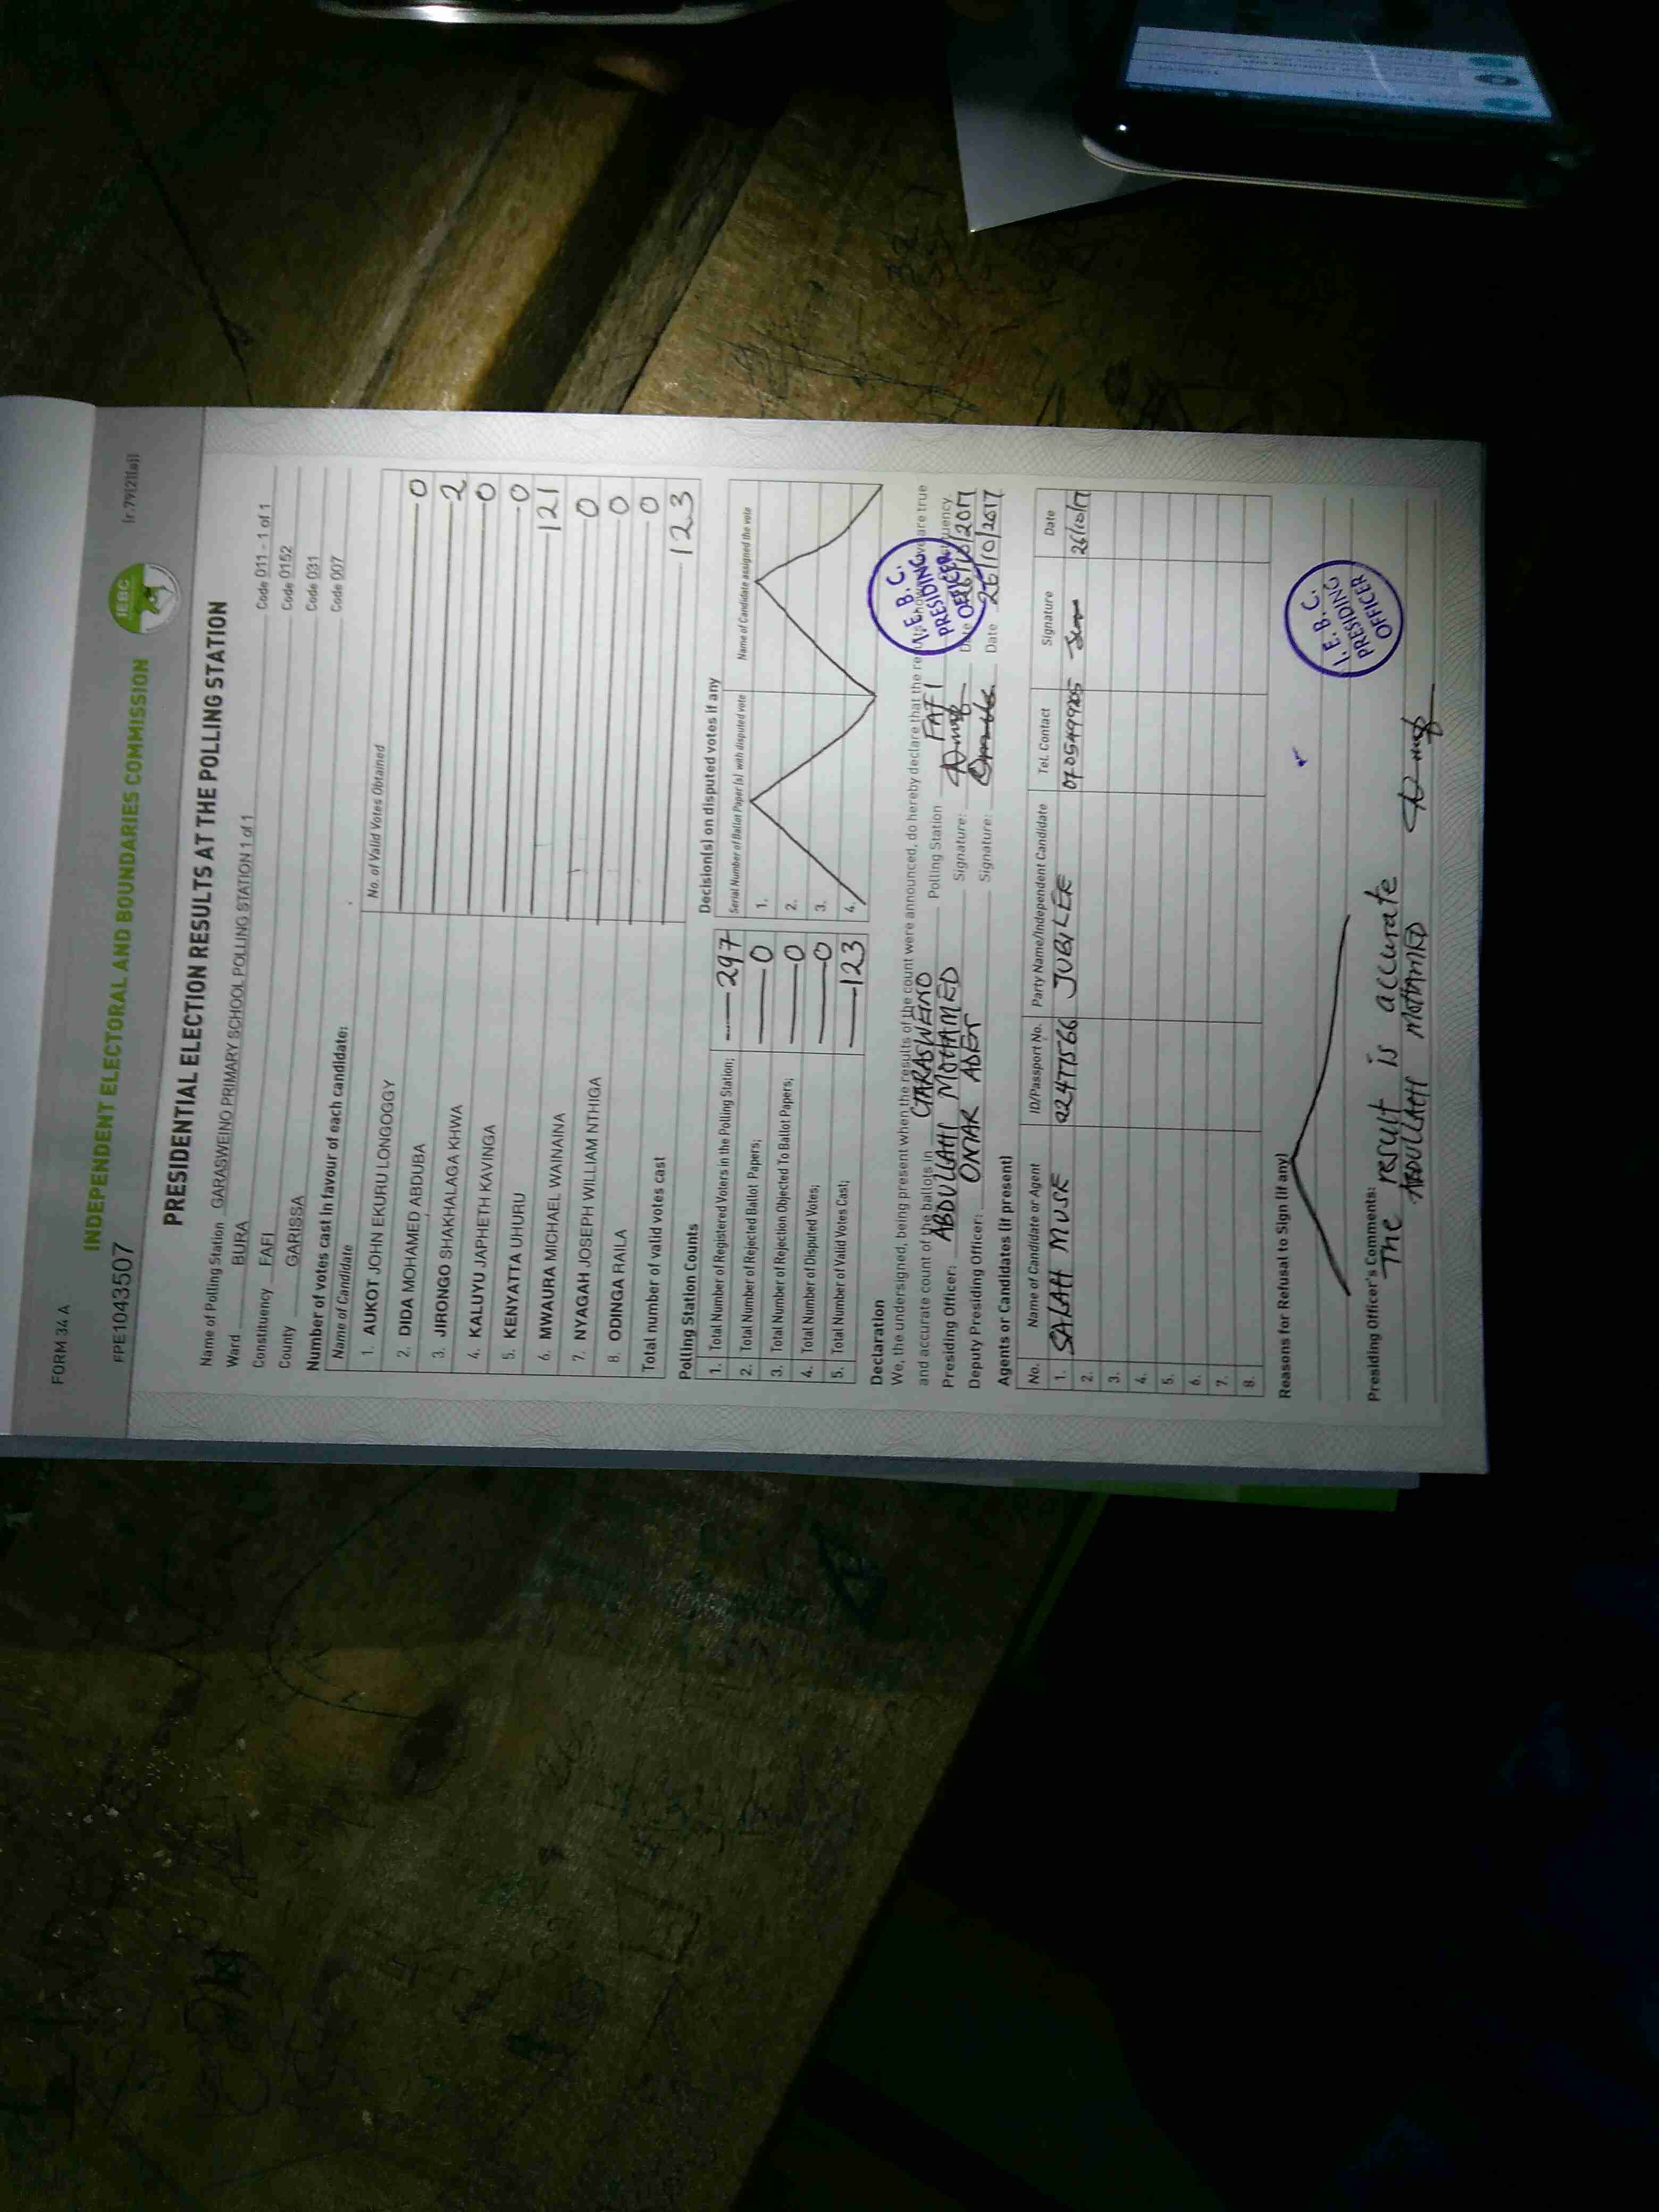 FORM 34 A
INDEPENDENT ELECTORAL AND BOUNDARIES COMMISSION
IEBC
FPE1043507
(r.79(2)(a))
PRESIDENTIAL ELECTION RESULTS AT THE POLLING STATION
Name of Polling Station GARASWEINO PRIMARY SCHOOL POLLING STATION 1 of 1 Code 011 - 1 of 1
Ward BURA Code 0152
Constituency FAFI Code 031
County GARISSA Code 007
Number of votes cast in favour of each candidate:
Name of Candidate No. of Valid Votes Obtained
1. AUKOT JOHN EKURU LONGOGGY 0
2. DIDA MOHAMED ABDUBA 2
3. JIRONGO SHAKHALAGA KHWA 0
4. KALUYU JAPHETH KAVINGA 0
5. KENYATTA UHURU 121
6. MWAURA MICHAEL WAINAINA 0
7. NYAGAH JOSEPH WILLIAM NTHIGA 0
8. ODINGA RAILA 0
Total number of valid votes cast 123
Polling Station Counts
1. Total Number of Registered Voters in the Polling Station; 297
2. Total Number of Rejected Ballot Papers; 0
3. Total Number of Rejection Objected To Ballot Papers; 0
4. Total Number of Disputed Votes; 0
5. Total Number of Valid Votes Cast; 123
Decision(s) on disputed votes if any
Serial Number of Ballot Paper (s) with disputed vote Name of Candidate assigned the vote
1.
2.
3.
4.
Declaration
We, the undersigned, being present when the results of the count were announced, do hereby declare that the results shown above are true
and accurate count of the ballots in GARASWEINO Polling Station FAFI
Presiding Officer: ABDULLAHI MOHAMED Signature: Date 26/10/2017
Deputy Presiding Officer: OMAR ADEN Signature: Date 26/10/2017
I. E. B. C. PRESIDING OFFICER
Agents or Candidates (if present)
No. Name of Candidate or Agent ID/Passport No. Party Name/Independent Candidate Tel. Contact Signature Date
1. SALAH MUSE JUBILEE 26/10/17
2.
3.
4.
5.
6.
7.
8.
Reasons for Refusal to Sign (if any)
I. E. B. C. PRESIDING OFFICER
Presiding Officer's Comments:
The result is accurate
ABDULLAHI MOHAMED